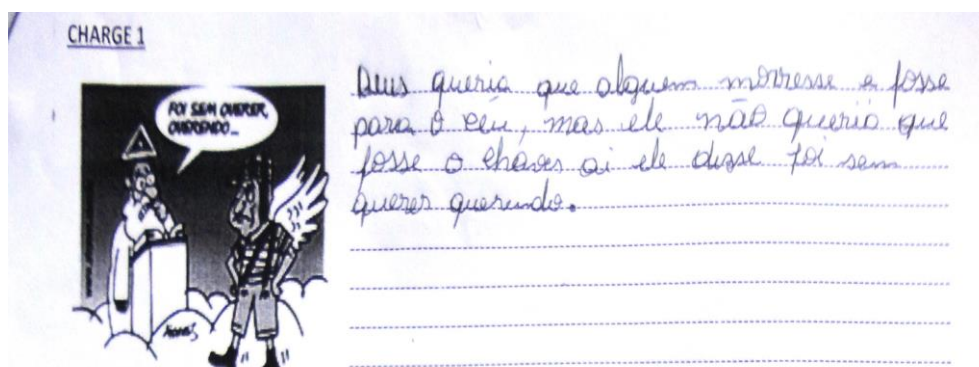 CHARGE 1
FOI SEM QUERER,
QUERENDO...
Deus queria que alguem morresse e fosse
para o céu, mas ele não queria que
fosse o chaves ai ele disse foi sem
querer querendo.